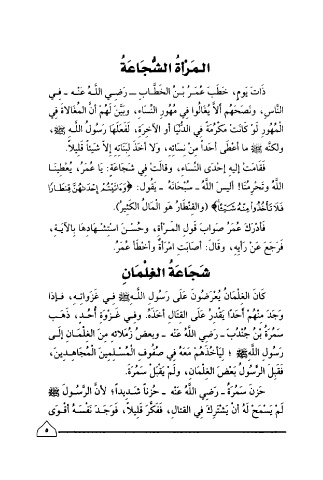 المَرْأةُ الشُّجَاعَةُ
ذَاتَ يَومٍ، خَطَبَ عُمَرُ بْنُ الْخَطَّابِ ـ رَضِي اللَّهُ عَنْه ـ فِي
النَّاسِ، وَنَصَحَهُم أَلاَّ يُغَالُوا فِي مُهُورِ النِّسَاءِ، وَبَيَّنَ لَهُمْ أَنَّ المُغَالاةَ فِي
المُهُورِ لَوْ كَانَتْ مَكْرُمَةً فِي الدُّنْيَا أو الآخِرَةِ، لَفَعَلَهَا رَسُولُ اللَّهِ ﷺ،
ولكنَّه ﷺ مَا أَعْطَى أَحَدًا مِنْ نِسَائِهِ، وَلا أَخَذَ لِبَنَاتِهِ إِلاَّ شَيْئًا قَلِيلاً.
فَقَامَتْ إِلَيهِ إِحْدَى النِّسَاءِ، وقَالَتْ فِي شَجَاعَةٍ: يَا عُمَرُ، يُعْطِينَا
اللَّهُ وتَحْرِمُنَا! أَلَيسَ اللَّهُ ـ سُبْحَانَهُ ـ يَقُول: ﴿وَءَاتَيْتُمْ إِحْدَىٰهُنَّ قِنطَارًا
فَلَا تَأْخُذُوا۟ مِنْهُ شَيْـًٔا﴾ (والقِنْطَارُ هُوَ الْمَالُ الْكَثِيرُ).
فَأَدْرَكَ عُمَرُ صَوَابَ قَولِ الْمَرْأَةِ، وحُسْنَ اسْتِشْهَادِهَا بِالآيَةِ،
فَرَجَعَ عَنْ رَأْيِهِ، وقَالَ: أَصَابَتِ امْرَأَةٌ وأَخْطَأَ عُمَرُ.
شَجَاعَةُ الغِلْمَانِ
كَانَ الغِلْمَانُ يُعْرَضُونَ عَلَى رَسُولِ اللَّهِ ﷺ فِي غَزَوَاتِهِ، فَإِذَا
وَجَدَ مِنْهُمْ أَحَدًا يَقْدِرُ عَلَى القِتَالِ أَخَذَهُ. وفِي غَزْوَةِ أُحُدٍ، ذَهَبَ
سَمُرَةُ بْنُ جُنْدُبَ ـ رَضِيَ اللَّهُ عَنْهُ ـ وبعضُ زُمَلائِهِ مِنَ الغِلْمَانِ إِلَى
رَسُولِ اللَّهِ ﷺ ؛ لِيَأْخُذَهُمْ مَعَهُ فِي صُفُوفِ الْمُسْلِمِينَ الْمُجَاهِدِينَ،
فَقَبِلَ الرَّسُولُ بَعْضَ الغِلْمَانِ، ولَمْ يَقْبَلْ سَمُرَةَ.
حَزِنَ سَمُرَةُ ـ رَضِيَ اللَّهُ عَنْهُ ـ حُزنًا شَدِيدًا؛ لأنَّ الرَّسُولَ ﷺ
لَمْ يَسْمَحْ لَهُ أَنْ يَشْتَرِكَ فِي القتالِ، فَفَكَّرَ قَلِيلاً، فَوَجَدَ نَفْسَهُ أَقْوَى
٥